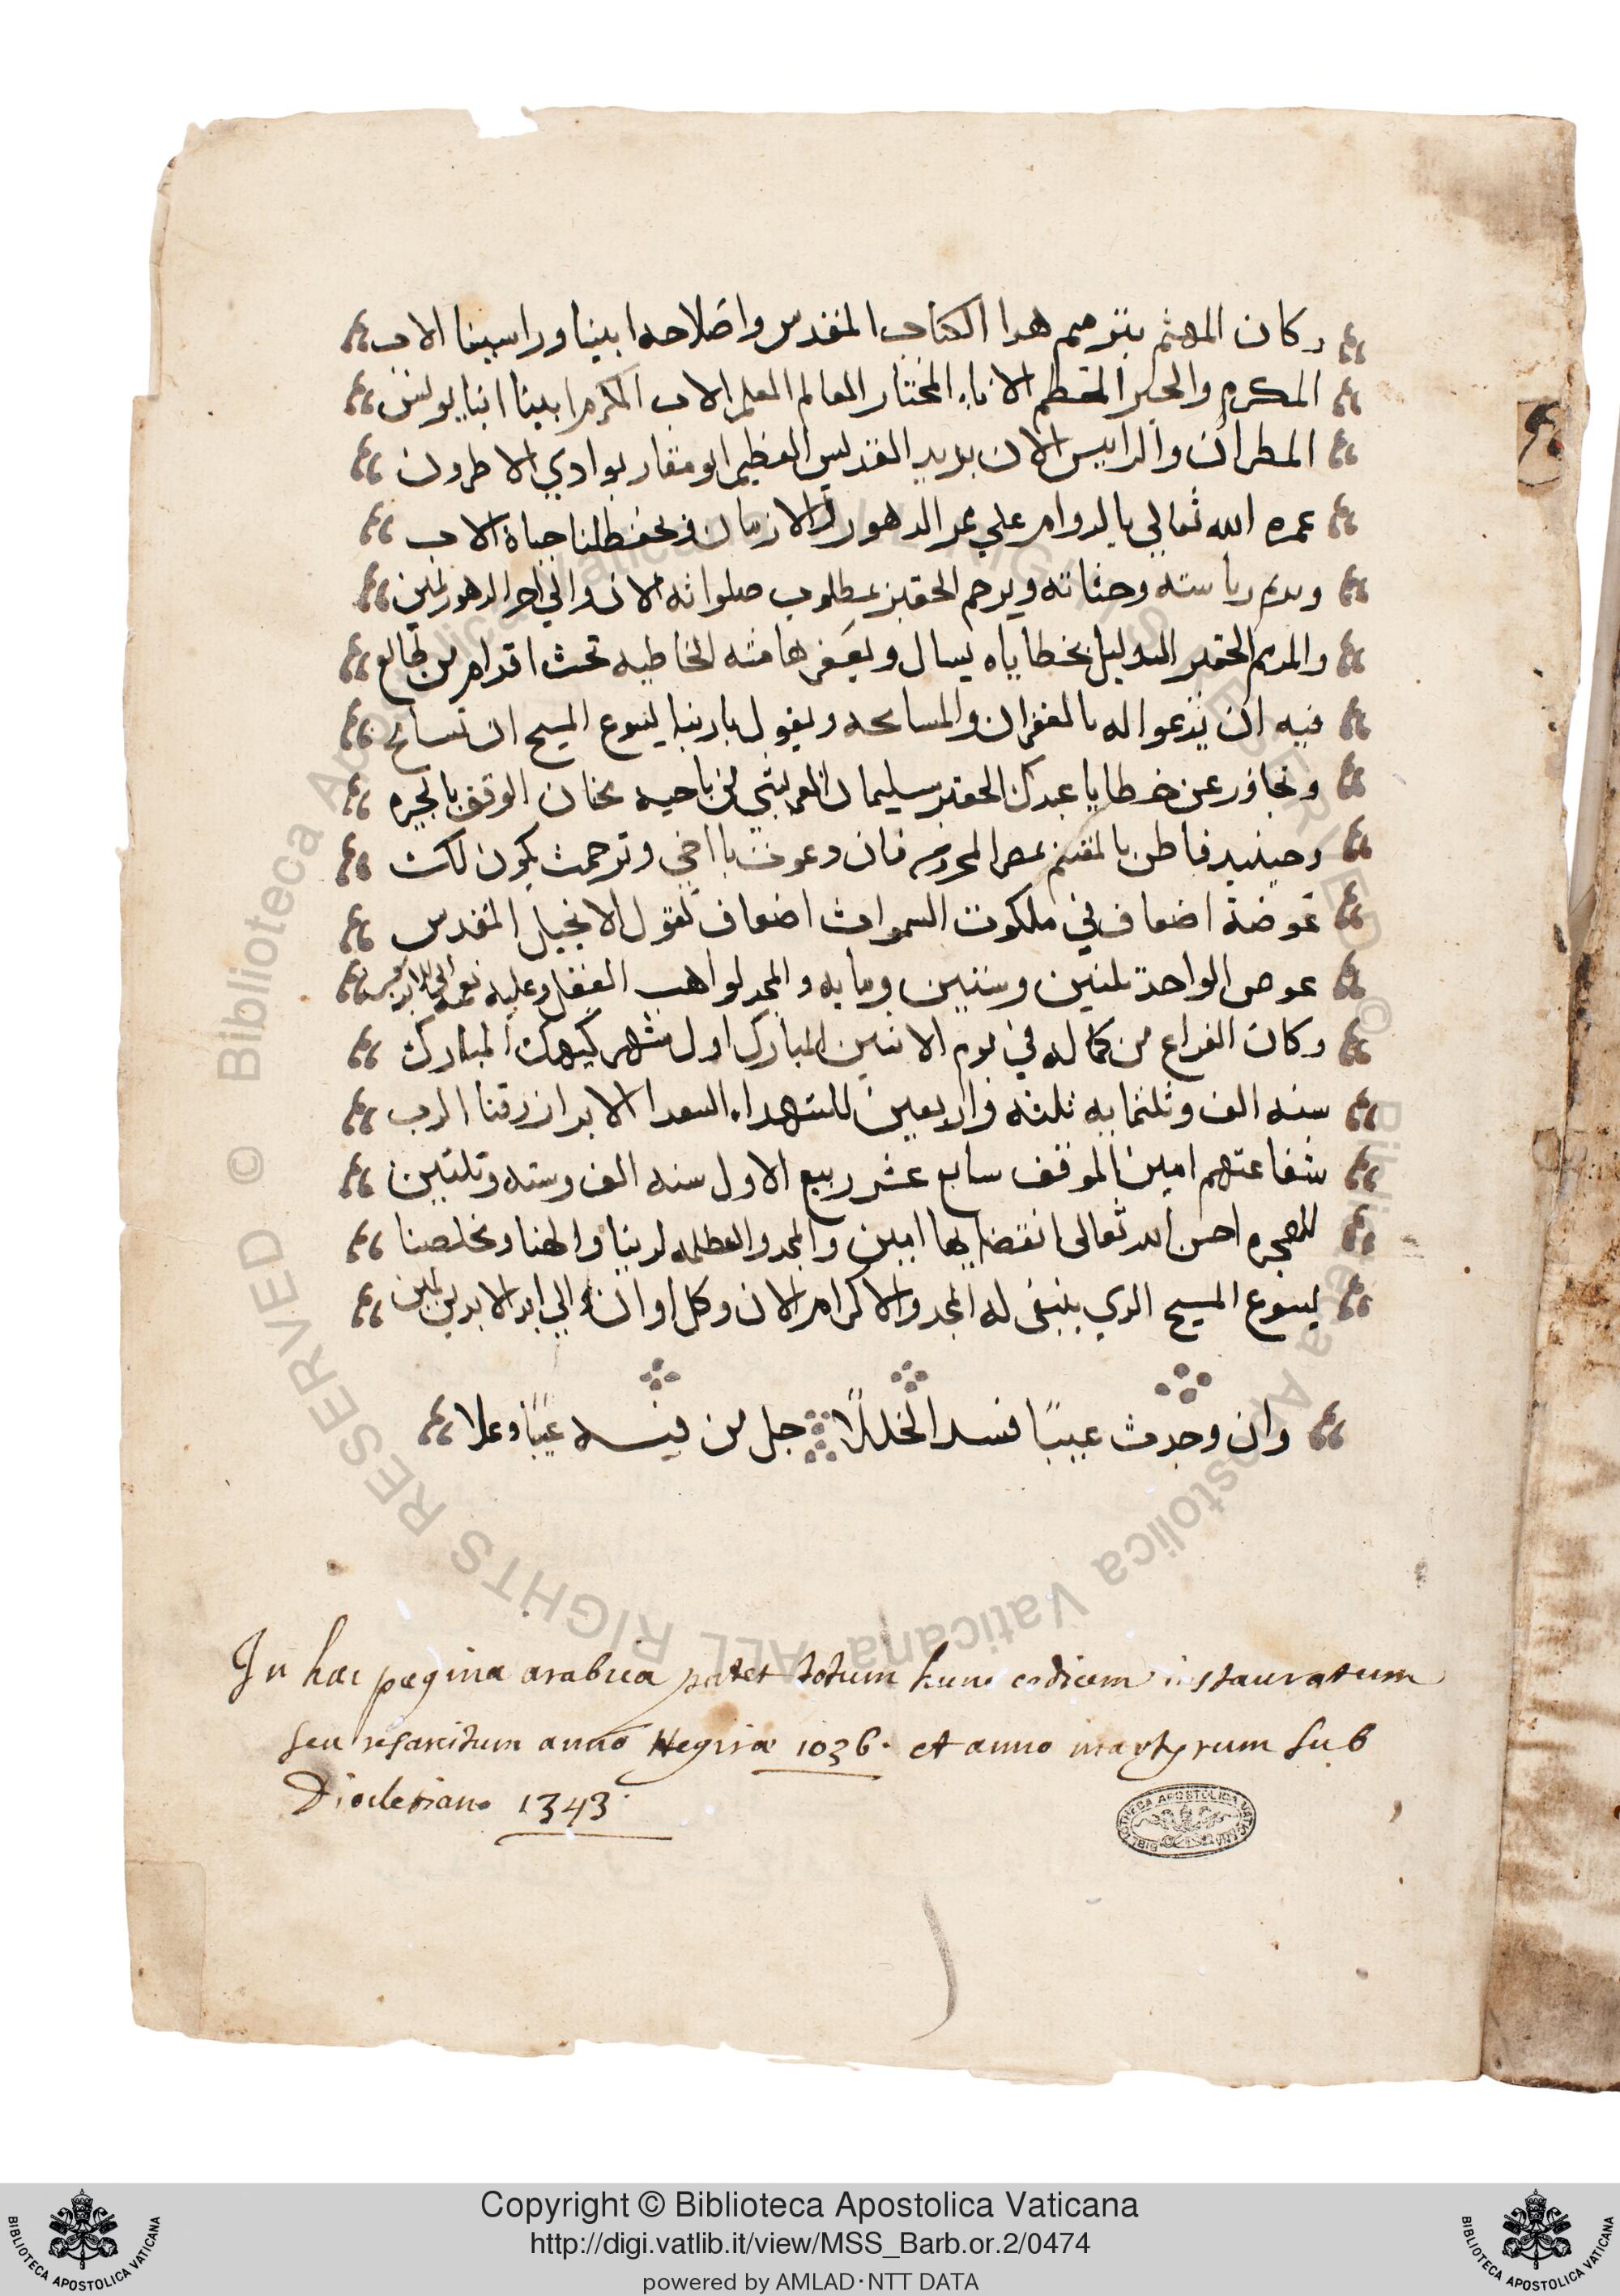 وكان المهتم بترميم هدا الكتاب المقدس واصلاحه ابينا وراسينا الاب
المكرم والحبر المعظم الاناء المختار العالم المعلم الاب المكرم ابينا انبا يونس
المطران والراييس الان بدير القديس العظيم ابو مقار بوادي الاطرون
عمره الله تعالي بالدوام علي ممر الدهور والازمان ويحفظ لنا حياة الاب
ويديم رياسته وحتاته ويرحم الحقير بمطلوب صلواته الان والي اخر الدهور امين
والمرمم الحقير الدليل بخطاياه يسال ويعفر هامته الخاطيه تحت اقدام من طالع
فيه ان يدعوا له بالمغفران والمسامحه ويقول يا ربنا يسوع المسيح ان تسامح
وتجاوز عن خطايا عبدك الحقير سليمان من ناحيه بخان الوقف بالجيره
وحينيد قاطن بالمقسم بمصر المحروسه فان دعوت يا اخي وترحمت يكون لك
عوضة اضعاف في ملكوت السموات اضعاف كقول الانجيل المقدس
عوض الواحد تلتين وستين ومايه والمجد لواهب العقل وعليه
وكان الفراغ من كماله في يوم الاتنين المبارك اول شهر كيهك المبارك
سنه الف وتلتمايه تلته واربعين للشهداء السعدا الابرار رزقنا الرب
شفاعتهم امين الموقف سابع عشر ربيع الاول سنه الف وسته وتلتين
للهجره احسن الله تعالى انقضايها امين والمجد والعظمه لربنا والهنا ومخلصنا
يسوع المسيح الدي ينبغي له المجد والاكرام الان وكل اوان والي ابد الابدين امين
وان وجدت عيبًا فسد الخللًا جل من فيه عيبًا وعلا
In hac pagina arabica patet totum hunc codicem instauratum
seu resarcitum anno Hegiræ 1036. et anno martyrum sub
Diocletiano 1343.
BIBLIOTHECA APOSTOLICA VATICANA
© Biblioteca Apostolica Vaticana ALL RIGHTS RESERVED
Copyright © Biblioteca Apostolica Vaticana
http://digi.vatlib.it/view/MSS_Barb.or.2/0474
powered by AMLAD·NTT DATA
BIBLIOTECA APOSTOLICA VATICANA
BIBLIOTECA APOSTOLICA VATICANA